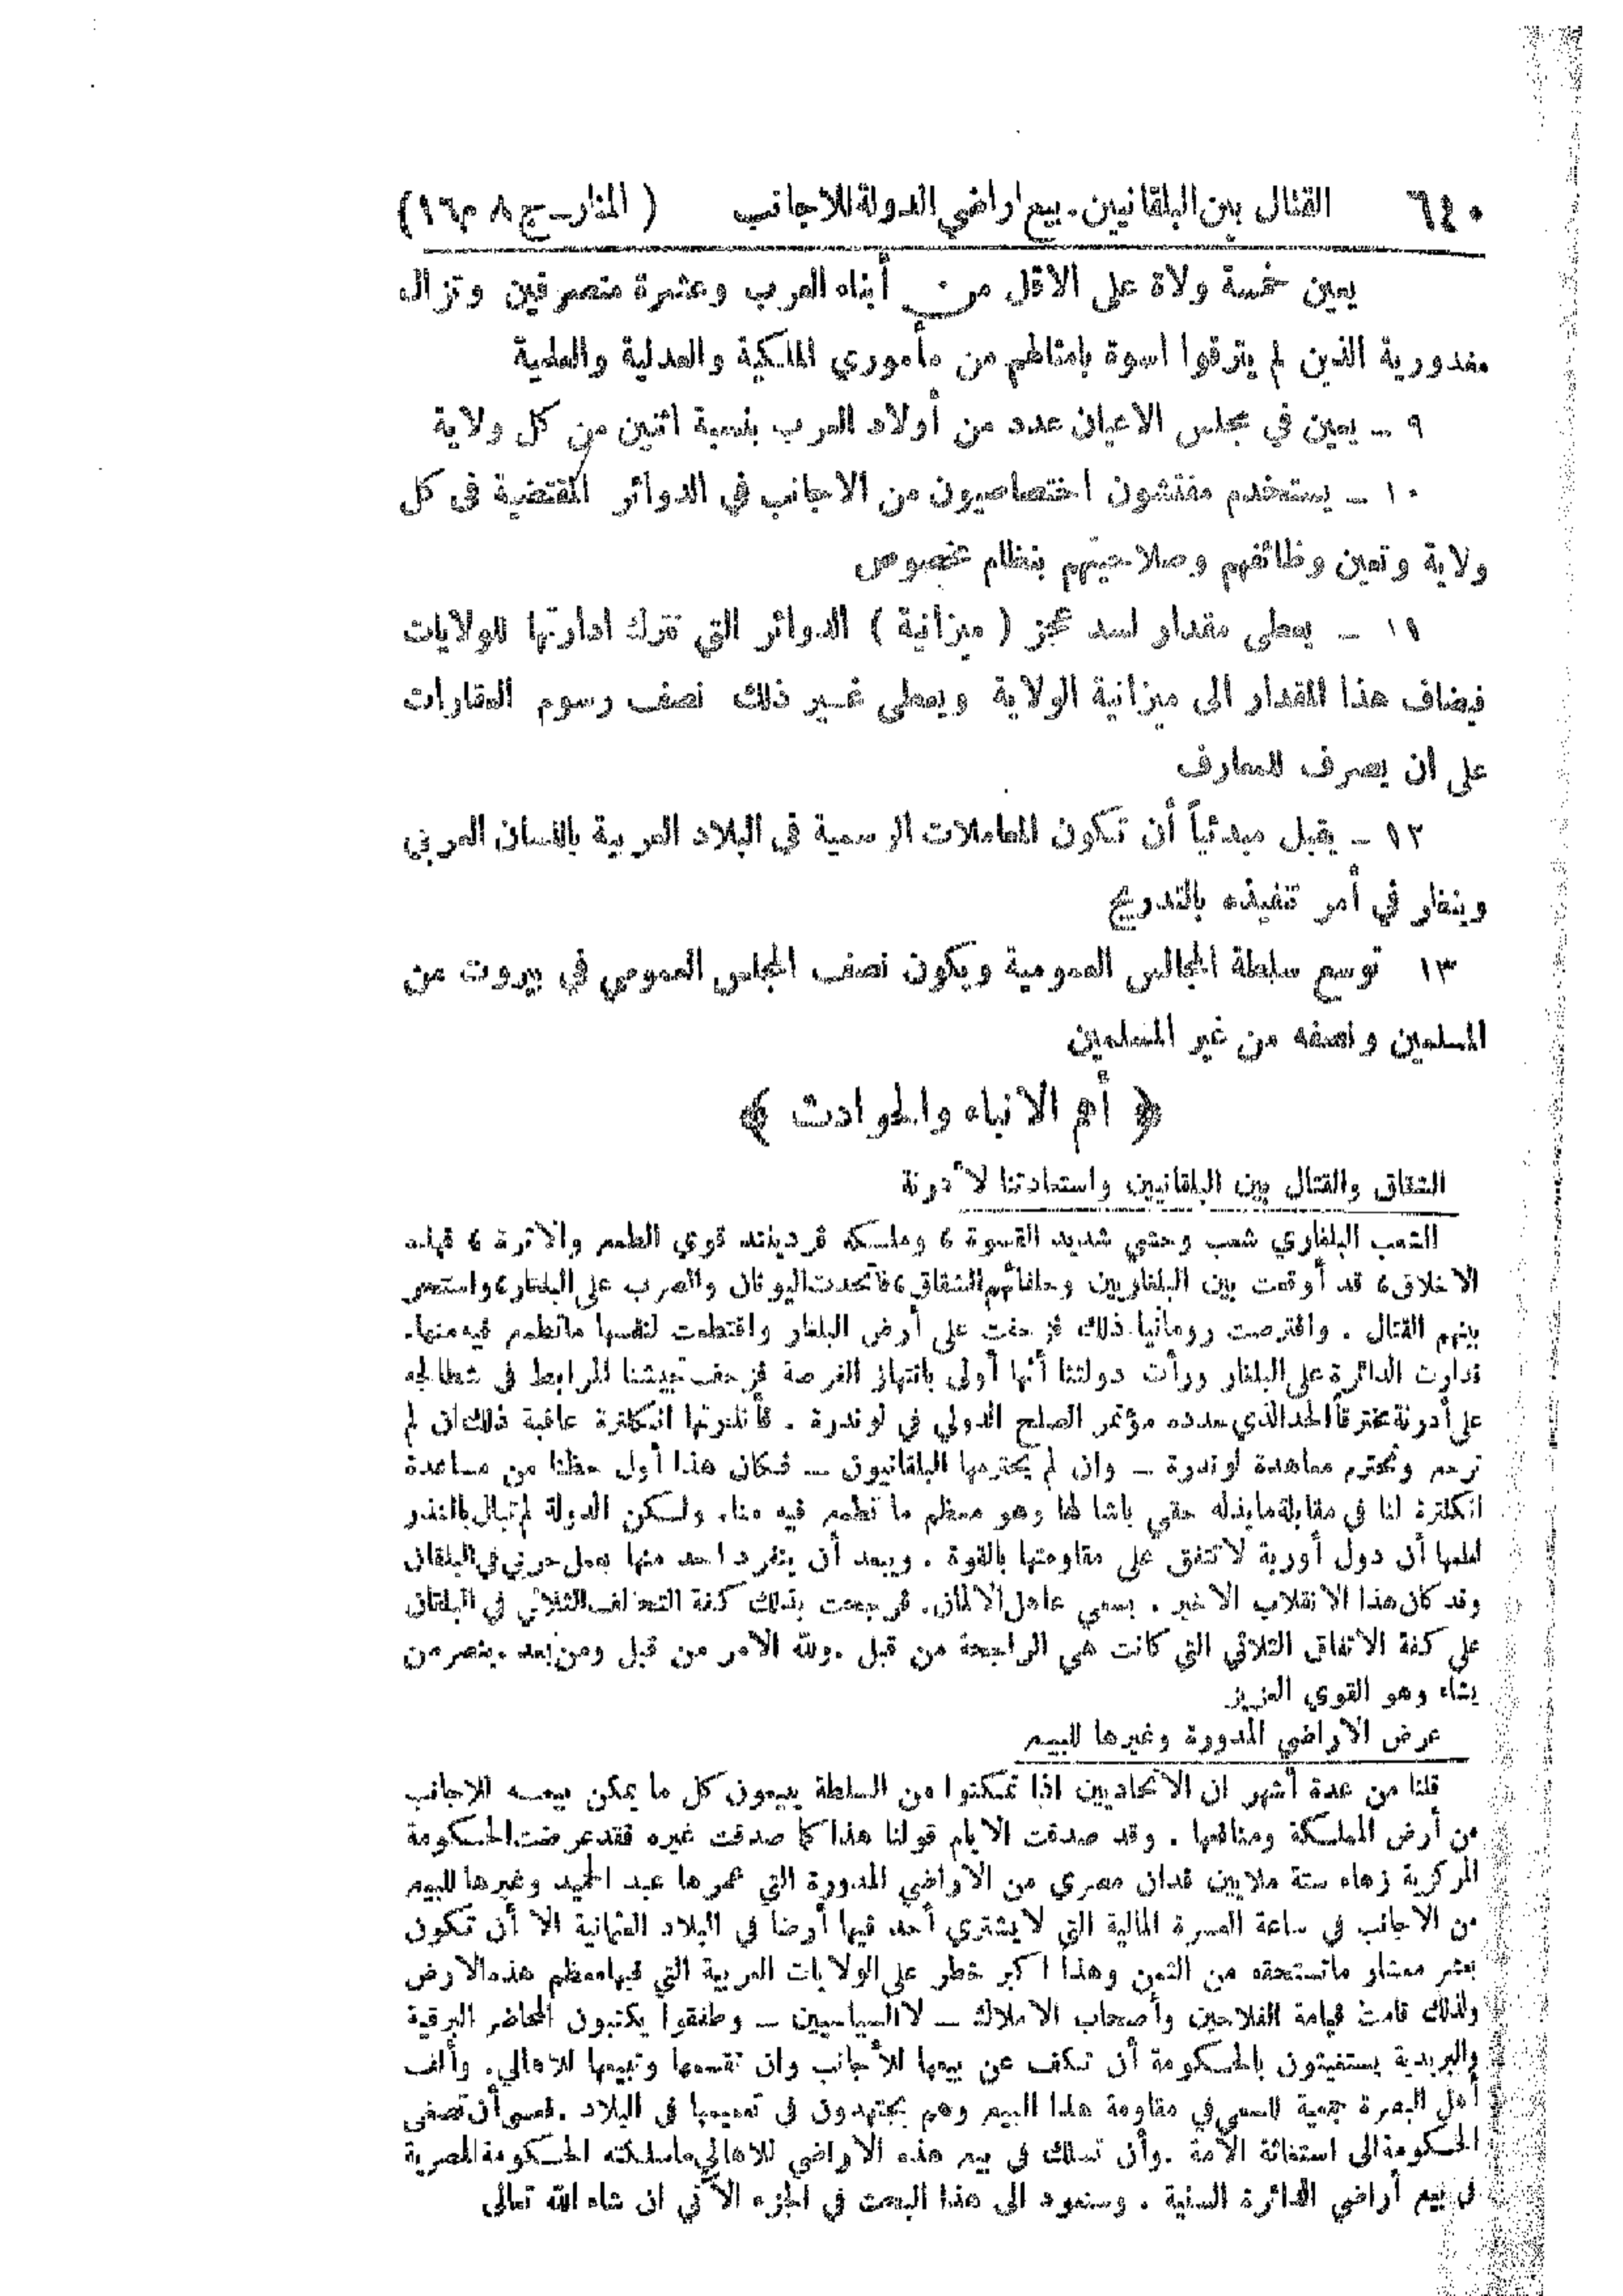 ٦٤٠ القتال بين البلقانيين. بيع اراضي الدولة للاجانب ( المنار ـ ج ٨ م ١٦ )
يعين خمسة ولاة على الاقل من أبناء العرب وعشرة متصرفين وتزال
مغدورية الذين لم يترقوا اسوة بامثالهم من مأموري الملكية والعدلية والعلمية
٩ ـ يعين في مجلس الاعيان عدد من أولاد العرب بنسبة اثنين من كل ولاية
١٠ ـ يستخدم مفتشون اختصاصيون من الاجانب في الدوائر المقتضية في كل
ولاية وتعين وظائفهم وصلاحيتهم بنظام مخصوص
١١ ـ يعطى مقدار لسد عجز ( ميزانية ) الدوائر التي تترك ادارتها للولايات
فيضاف هذا المقدار الى ميزانية الولاية ويعطى غير ذلك نصف رسوم العقارات
على ان يصرف للمعارف
١٢ ـ يقبل مبدئياً أن تكون المعاملات الرسمية في البلاد العربية باللسان العربي
وينظر في أمر تنفيذه بالتدريج
١٣ توسع سلطة المجالس العمومية ويكون نصف المجلس العمومي في بيروت من
المسلمين ونصفه من غير المسلمين
﴿ أهم الانباء والحوادث ﴾
الشقاق والقتال بين البلقانيين واستعادتنا لأدرنة
الشعب البلغاري شعب وحشي شديد القسوة ، وملكه فرديند قوي الطمع والاثرة ، فهذه
الاخلاق ، قد أوقعت بين البلغاريين وحلفائهم الشقاق ، فاتحدت اليونان والصرب على البلغار ، واستحر
بينهم القتال . وافترصت رومانيا ذلك فزحفت على أرض البلغار واقتطعت لنفسها ما تطمع فيه منها.
فدارت الدائرة على البلغار ورأت دولتنا أنها أولى بانتهاز الفرصة فزحف جيشنا المرابط في شطالجه
على أدرنة مخترقاً الحد الذي حدده مؤتمر الصلح الدولي في لوندرة . فأنذرتها انكلترة عاقبة ذلك ان لم
ترجع وتحترم معاهدة لوندرة ـ وان لم يحترمها البلقانيون ـ فكان هذا أول حظنا من مساعدة
انكلترة لنا في مقابلة ما بذله حقي باشا لها وهو معظم ما تطمع فيه منا. ولكن الدولة لم تبال بالنذر
لعلمها أن دول أوربة لا تتفق على مقاومتها بالقوة . ويبعد أن ينفرد احد منها بعمل حربي في البلقان
وقد كان هذا الانقلاب الاخير . بسعي عاهل الالمان. فرجحت بذلك كفة التحالف الثلاثي في البلقان
على كفة الاتفاق الثلاثي التي كانت هي الراجحة من قبل .ولله الامر من قبل ومن بعد .ينصر من
يشاء وهو القوي العزيز
عرض الاراضي المدورة وغيرها للبيع
قلنا من عدة أشهر ان الاتحاديين اذا تمكنوا من السلطة يبيعون كل ما يمكن بيعه للاجانب
من أرض المملكة ومنافعها . وقد صدقت الايام قولنا هذا كما صدقت غيره فقد عرضت الحكومة
المركزية زهاء ستة ملايين فدان مصري من الاراضي المدورة التي عمرها عبد الحميد وغيرها للبيع
من الاجانب في ساعة العسرة المالية التي لا يشتري أحد فيها أرضا في البلاد العثمانية الا أن تكون
بعشر معشار ما تستحقه من الثمن وهذا اكبر خطر على الولايات العربية التي فيها معظم هذه الارض
ولذلك قامت قيامة الفلاحين وأصحاب الاملاك ـ لا السياسيين ـ وطفقوا يكتبون المحاضر البرقية
والبريدية يستغيثون بالحكومة أن تكف عن بيعها للأجانب وان تقسمها وتبيعها للاهالي. وألف
أهل البصرة جمعية للسعي في مقاومة هذا البيع وهم يجتهدون في تعميمها في البلاد .فعسى أن تصغي
الحكومة الى استغاثة الأمة .وأن تسلك في بيع هذه الاراضي للاهالي ما سلكته الحكومة المصرية
في بيع أراضي الدائرة السنية . وسنعود الى هذا البحث في الجزء الآتي ان شاء الله تعالى